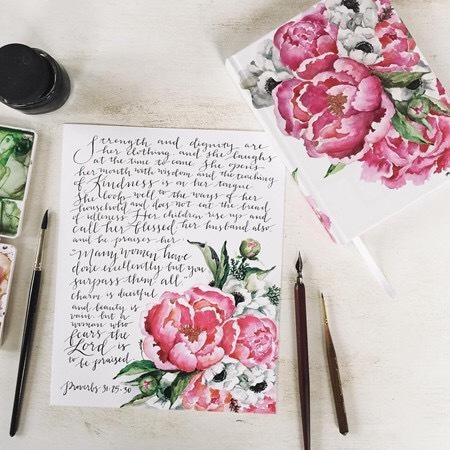 Strength and dignity are
her clothing and she laughs
at the time to come. She opens
her mouth with wisdom and the teaching
of Kindness is on her tongue
She looks well to the ways of her
household and does not eat the bread
of idleness. Her children rise up and
call her blessed her husband also
and he praises her
"Many women have
done excellently but you
surpass them all"
charm is deceitful
and beauty is
vain but a
woman who
fears the
Lord is
to be praised
Proverbs 31:25-30